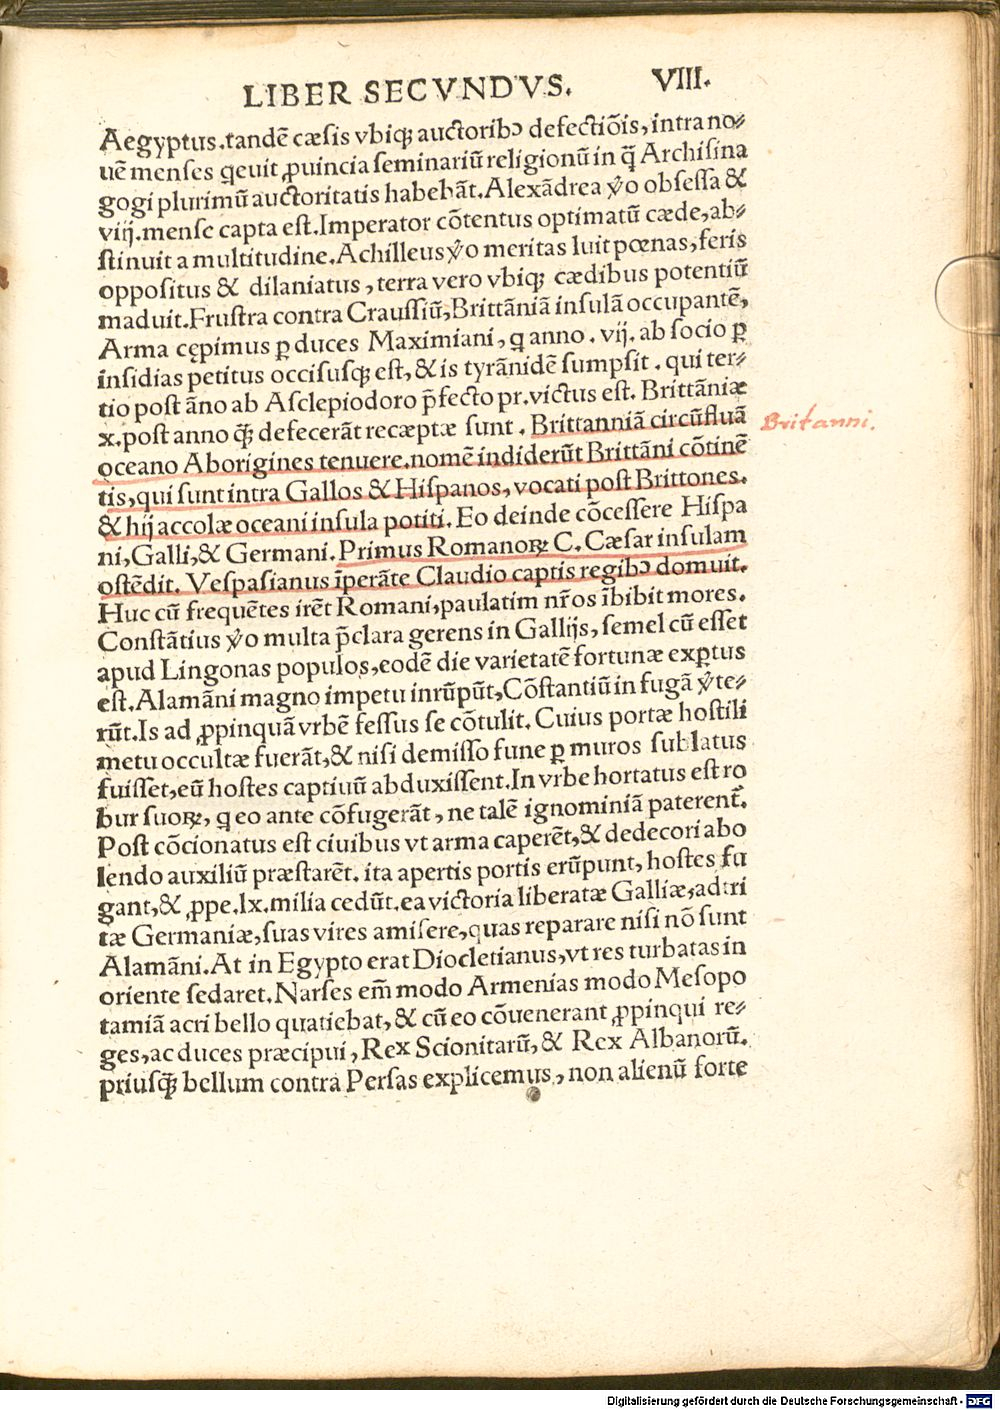 LIBER SECVNDVS. VIII.
Aegyptus.tandē cæsis vbiqꝫ auctoribꝰ defectiōis,intra no⸗
uē menses qeuit ꝓuincia seminariū religionū in qͣ̄ Archisina
gogi plurimū auctoritatis habebāt.Alexādrea v̊o obsessa &
viij.mense capta est.Imperator cōtentus optimatū cæde,ab⸗
stinuit a multitudine.Achilleus v̊o meritas luit pœnas,feris
oppositus & dilaniatus,terra vero vbiqꝫ cædibus potentiū
maduit.Frustra contra Craussiū,Brittāniā insulā occupantē,
Arma cępimus ꝑ duces Maximiani,q anno.vij.ab socio ꝑ
insidias petitus occisusqꝫ est,& is tyrānidē sumpsit.qui ter⸗
tio post āno ab Asclepiodoro p̄fecto pr.victus est. Brittāniæ
x.post anno qꝫ̄ defecerāt recæptæ sunt. Brittanniā circūfluā
oceano Aborigines tenuere.nomē indiderūt Brittāni cōtinē
tis,qui sunt intra Gallos & Hispanos,vocati post Brittones.
& hij accolæ oceani insula potiti.Eo deinde cōcessere Hispa
ni,Galli,& Germani.Primus Romanoꝝ C.Cæsar insulam
ostēdit. Vespasianus īperāte Claudio captis regibꝰ domuit.
Huc cū frequētes irēt Romani,paulatim nr̄os ībibit mores.
Constātius v̊o multa p̄clara gerens in Gallijs,semel cū esset
apud Lingonas populos,eodē die varietatē fortunæ exꝑtus
est.Alamāni magno impetu inrūpūt,Cōstantiū in fugā v̊te⸗
rūt.Is ad ꝓpinquā vrbē fessus se cōtulit.Cuius portæ hostili
metu occultæ fuerāt,& nisi demisso fune ꝑ muros sublatus
fuisset,eū hostes captiuū abduxissent.In vrbe hortatus est ro
bur suoꝝ,q eo ante cōfugerāt,ne talē ignominiā paterent᷑.
Post cōcionatus est ciuibus vt arma caperēt,& dedecori abo
lendo auxiliū præstarēt.ita apertis portis erūpunt,hostes fu
gant,& ꝓpe.lx.milia cedūt.ea victoria liberatæ Galliæ,adtri
tæ Germaniæ,suas vires amisere,quas reparare nisi nō sunt
Alamāni.At in Egypto erat Diocletianus,vt res turbatas in
oriente sedaret.Narses em̄ modo Armenias modo Mesopo
tamiā acri bello quatiebat,& cū eo cōuenerant ꝓpinqui re⸗
ges,ac duces præcipui,Rex Scionitarū,& Rex Albanorū.
priusqꝫ̄ bellum contra Persas explicemus,non alienū forte
Britanni.
Digitalisierung gefördert durch die Deutsche Forschungsgemeinschaft - DFG